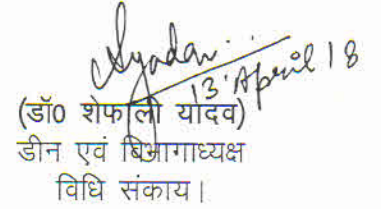 Syadav
13 April 18
(डॉ0 शेफाली यादव)
डीन एवं बिभागाध्यक्ष
विधि संकाय।